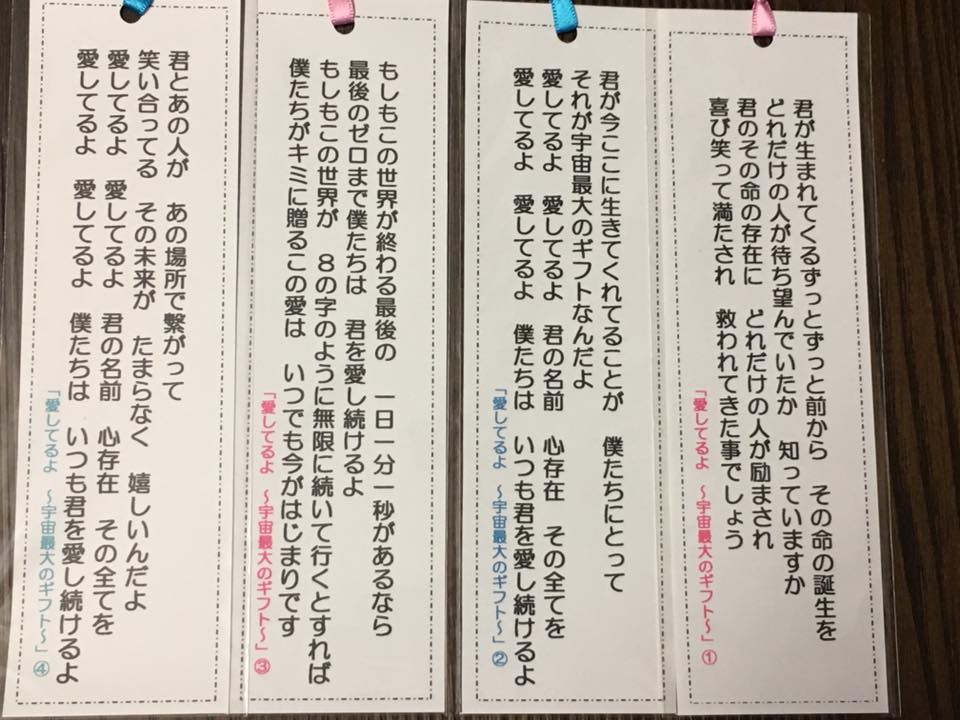 君が生まれてくるずっとずっと前から その命の誕生を
どれだけの人が待ち望んでいたか 知っていますか
君のその命の存在に どれだけの人が励まされ
喜び笑って満たされ 救われてきた事でしょう
「愛してるよ ～宇宙最大のギフト～」①
君が今ここに生きてくれてることが 僕たちにとって
それが宇宙最大のギフトなんだよ
愛してるよ 愛してるよ 君の名前 心存在 その全てを
愛してるよ 愛してるよ 僕たちは いつも君を愛し続けるよ
「愛してるよ ～宇宙最大のギフト～」②
もしもこの世界が終わる最後の 一日一分一秒があるなら
最後のゼロまで僕たちは 君を愛し続けるよ
もしもこの世界が 8の字のように無限に続いて行くとすれば
僕たちがキミに贈るこの愛は いつでも今がはじまりです
「愛してるよ ～宇宙最大のギフト～」③
君とあの人が あの場所で繋がって
笑い合ってる その未来が たまらなく 嬉しいんだよ
愛してるよ 愛してるよ 君の名前 心存在 その全てを
愛してるよ 愛してるよ 僕たちは いつも君を愛し続けるよ
「愛してるよ ～宇宙最大のギフト～」④